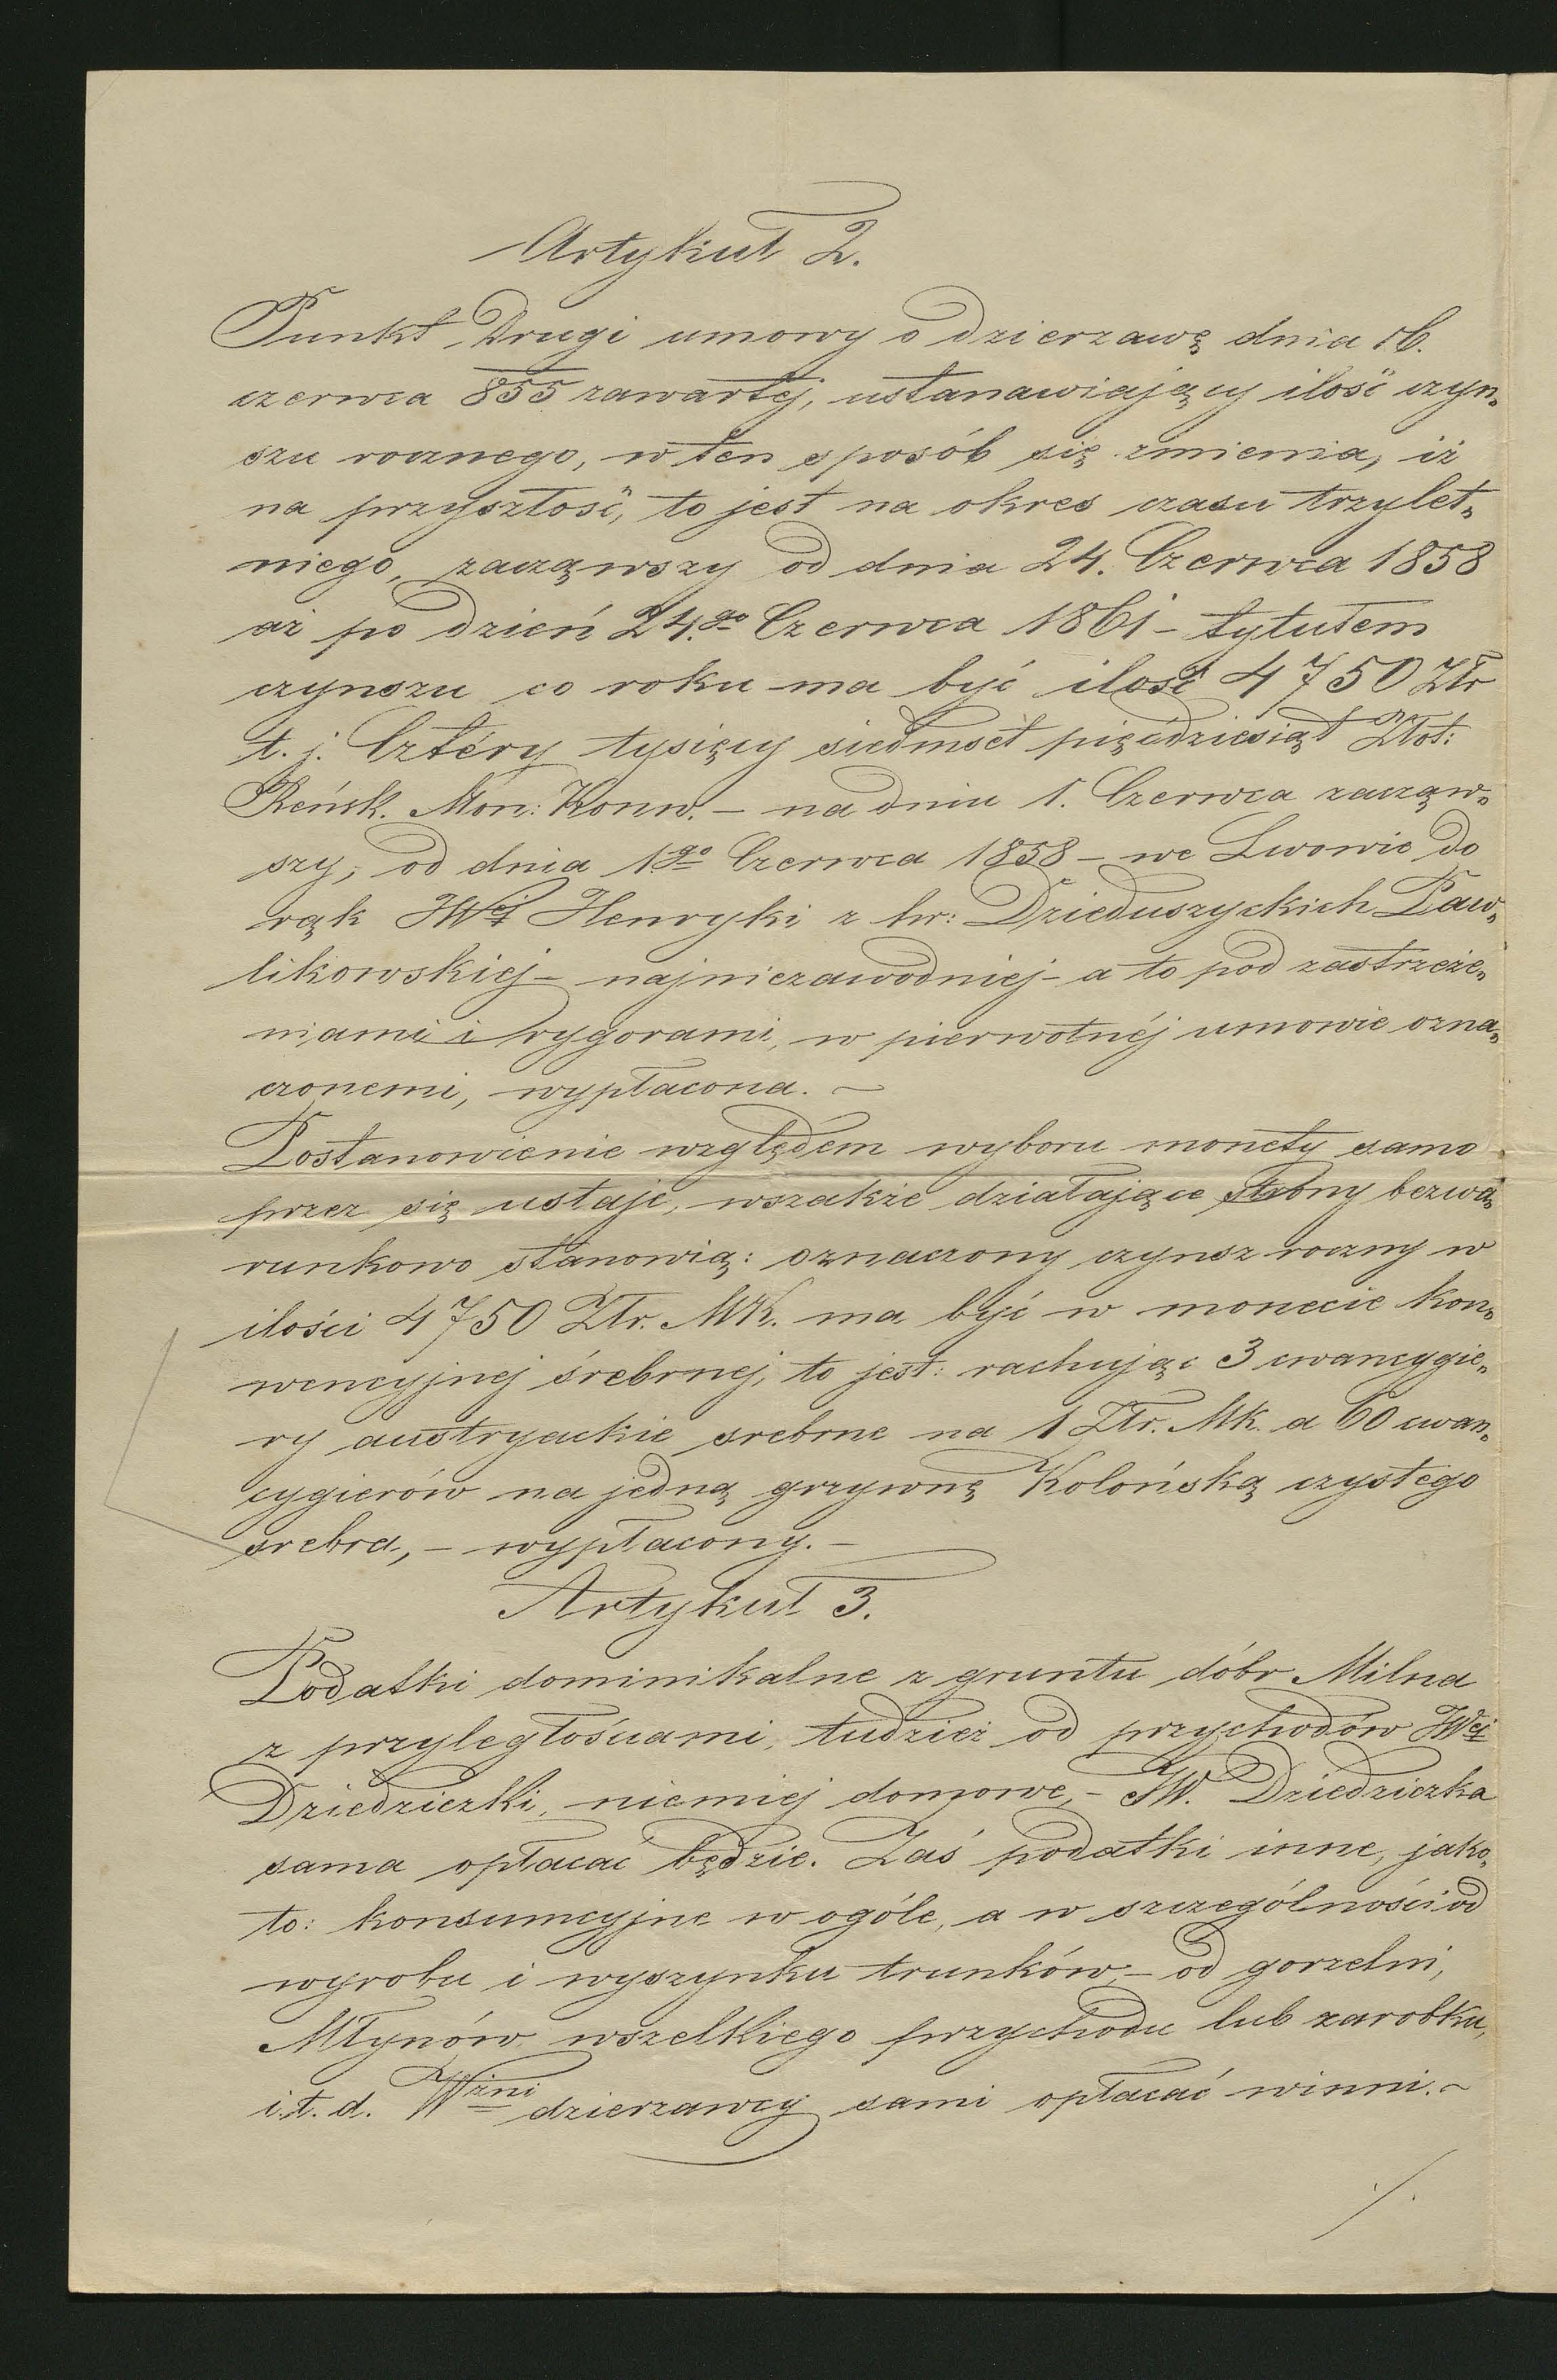 Artykuł 2.
Punkt Drugi umowy o dzierzawę dnia 16.
czerwca 855 zawartéj, ustanawiający ilość czyn„
szu rocznego, w ten sposób się zmienia, iż
na przyszłość, to jest na okres czasu trzylet„
niego, zacząwszy od dnia 24. Czerwca 1858
aż po dzień 24.go Czerwca 1861 – tytułem
czynszu co roku ma być ilość 4750 Złr
t. j. Cztéry tysięcy siedmset pięćdziesiąt Złot:
Reńsk. Mon: Konw. – na dniu 1. Czerwca zacząw„
szy, od dnia 1go Czerwca 1858 – we Lwowie do
rąk JWej Henryki z hr: Dzieduszyckich Paw„
likowskiej – najniezawodniej – a to pod zastrzeże„
niami i rygorami, w pierwotnéj umowie ozna„
czonemi, wypłacona. –
Postanowienie względem wyboru monety samo
przez się ustaje, wszakże działające strony bezwa„
runkowo stanowią: oznaczony czynsz roczny w
ilości 4750 Złr. MK. ma być w monecie kon„
wencyjnej śrebrnej, to jest: rachując 3 cwancygie„
ry austryackie srebrne na 1 Złr. Mk. a 60 cwan„
cygierów na jedną grzywnę Kolońską czystego
srebra, – wypłacony. –
Artykuł 3.
Podatki dominikalne z gruntu dóbr Milna
z przyległościami, tudzież od przychodów JWej
Dziedziczki, niemniej domowe, – JW. Dziedziczka
sama opłacać będzie. Zaś podatki inne, jako„
to: konsumcyjne w ogóle, a w szczególności od
wyrobu i wyszynku trunków, – od gorzelni,
Młynów wszelkiego przychodu lub zarobku,
i.t.d. Wżni dzierzawcy sami opłacać winni. –
./.